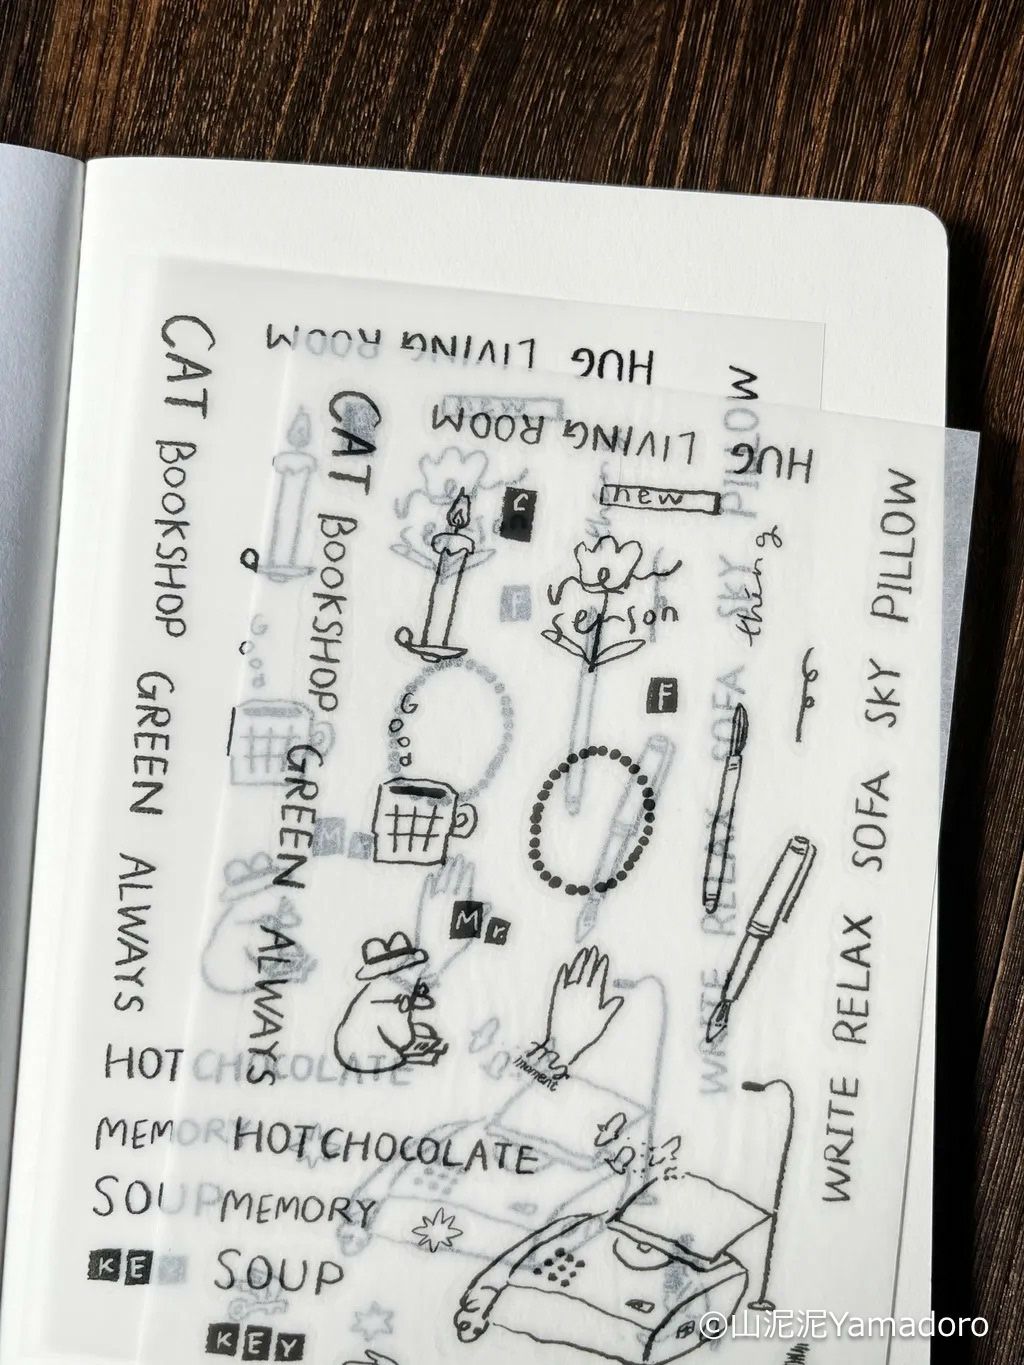 HUG LIVING ROOM
CAT BOOKSHOP GREEN ALWAYS
PILLOW
SKY
SOFA
RELAX
WRITE
HOT CHOCOLATE
MEMORY
SOUP
KEY
new
F
Mr
HUG LIVING ROOM
CAT BOOKSHOP GREEN ALWAYS
C
new
thing
erson
F
Mr
moment
WRITE RELAX SOFA SKY PILLOW
HOT CHOCOLATE
MEMORY
SOUP
KEY
©山泥泥Yamadoro